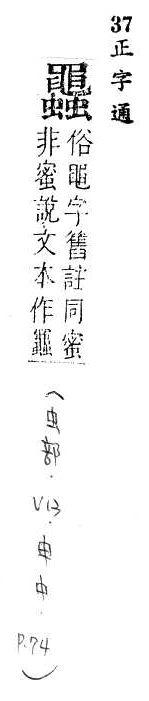 37正字通
俗黽字舊註同蜜
非蜜說文本作
(虫部.V13.申中.P.74)